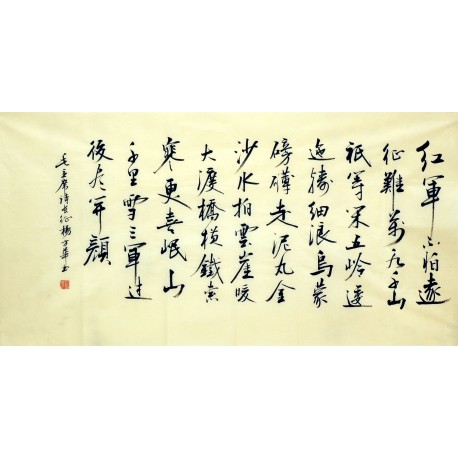 紅軍不怕遠
征難萬水千山
祇等閑五岭逶
迤騰細浪烏蒙
磅礴走泥丸金
沙水拍雲崖暖
大渡橋横鐵索
寒更喜岷山
千里雪三軍过
後尽开顔
毛主席詩长征楊万華书